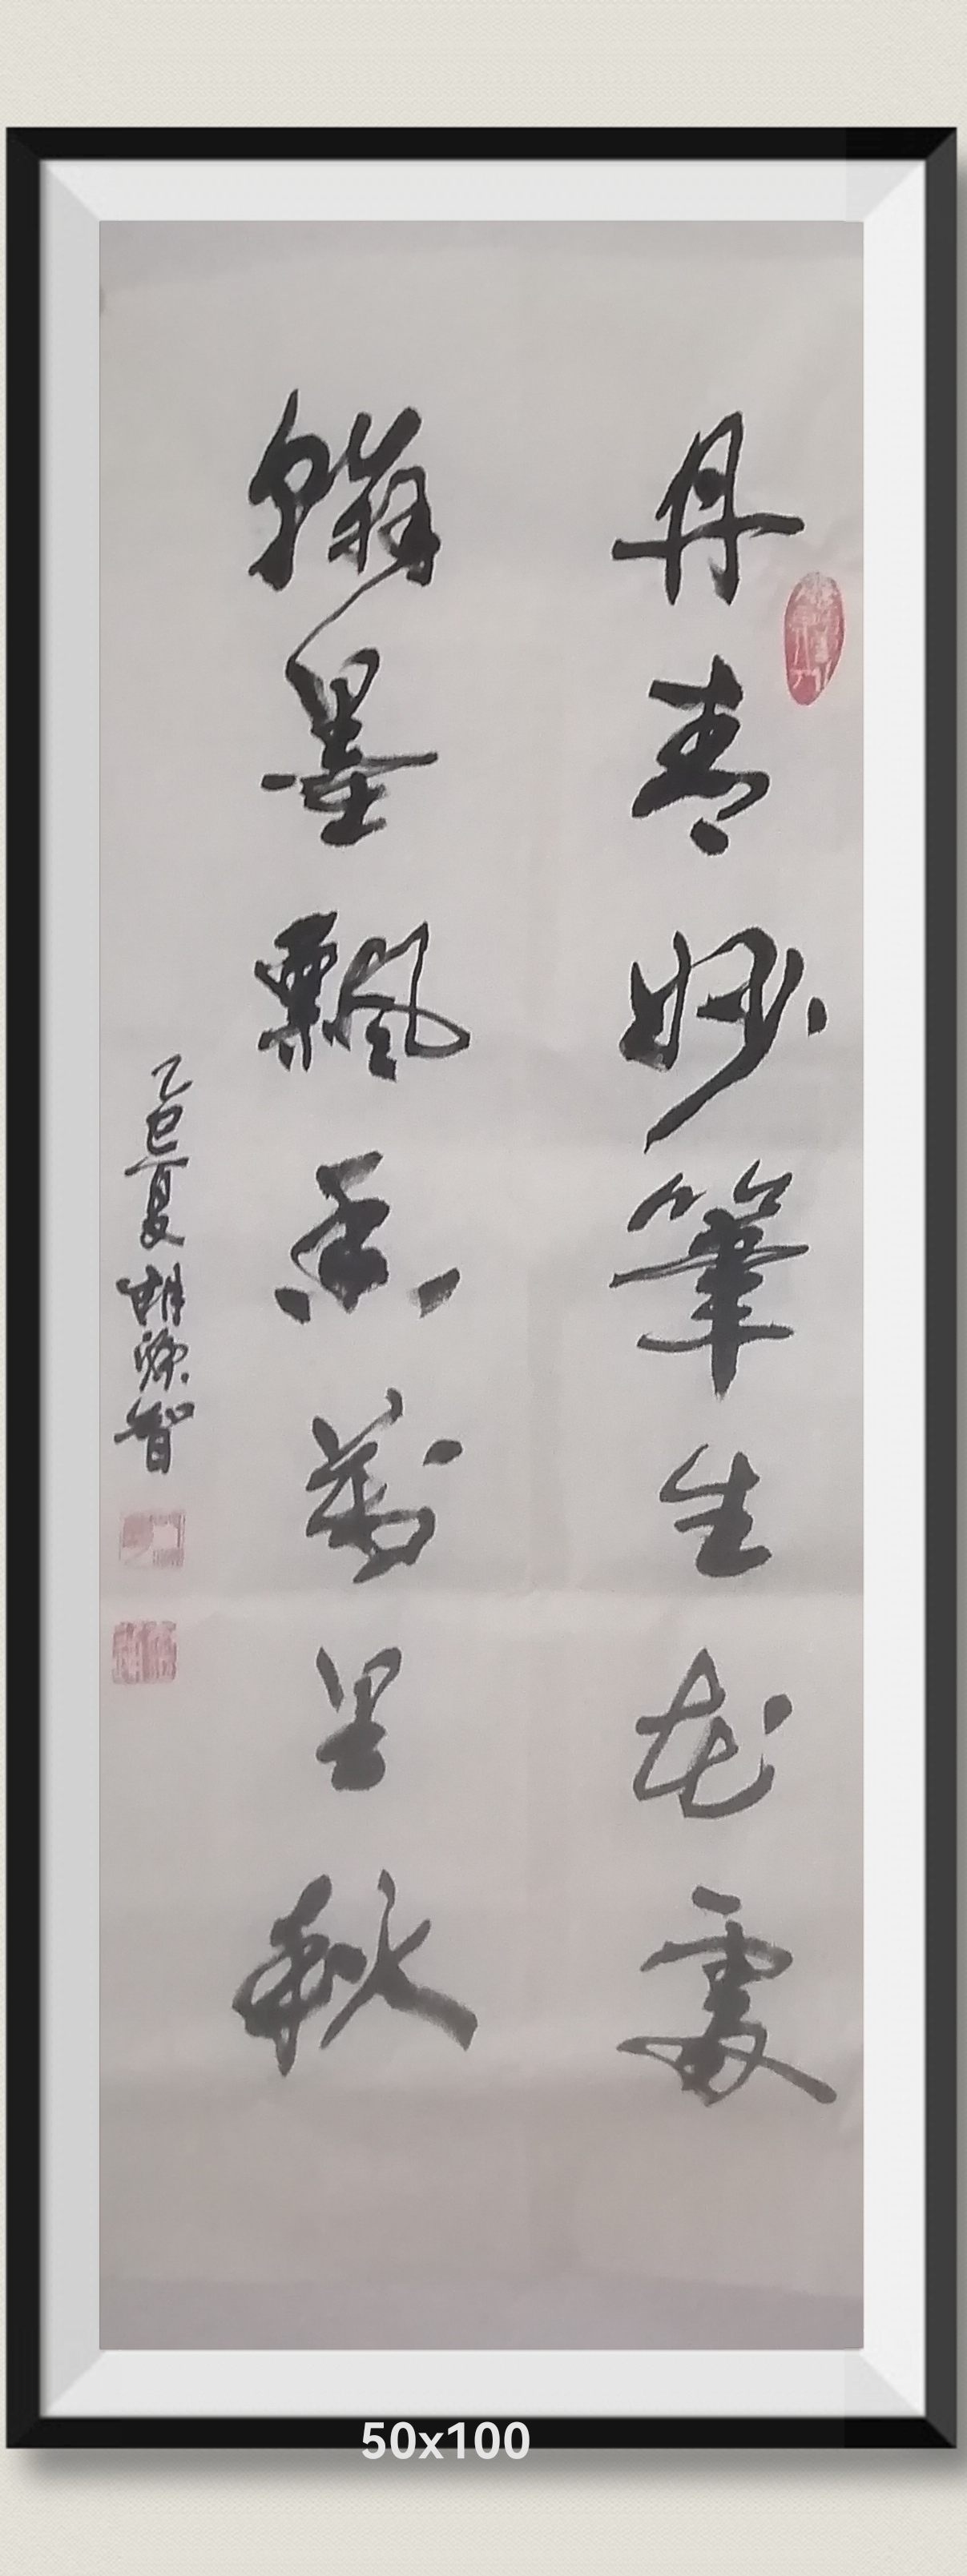 丹青妙筆生花處
翰墨飄香萬里秋
乙巳夏 胡源智
50x100